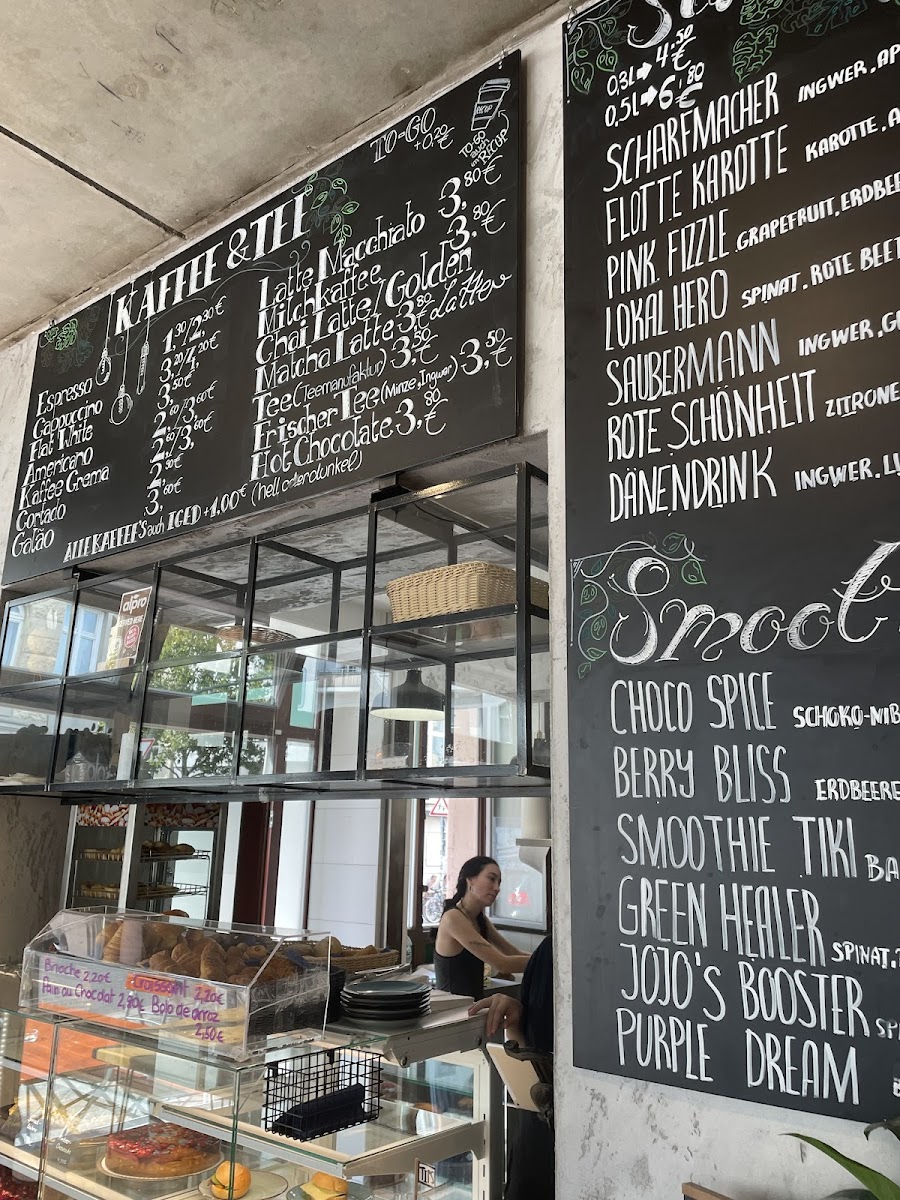 KAFFEE & TEE
TO-GO
+0,20€
RECUP
TO-GO
auch
im
RECUP
Espresso 1,30/2,30€
Cappuccino 3,20/4,20€
Flat White 3,50€
Americano 2,60/3,60€
Kaffee Crema 2,80/3,80€
Cortado 2,50€
Galão 3,60€
Latte Macchiato 3,80€
Milchkaffee 3,80€
Chai Latte/Golden Latte
Matcha Latte 3,80€
Tee (Teemanufaktur) 3,50€
Frischer Tee (Minze, Ingwer) 3,50€
Hot Chocolate 3,80€
(hell oder dunkel)
ALLE KAFFEE'S auch ICED +1,00€
0,3L 4,50€
0,5L 6,80€
SCHARFMACHER INGWER, AP
FLOTTE KAROTTE KAROTTE, A
PINK FIZZLE GRAPEFRUIT, ERDBEER
LOKAL HERO SPINAT, ROTE BEET
SAUBERMANN INGWER, GU
ROTE SCHÖNHEIT ZITRONE
DÄNENDRINK INGWER, LI
Smoot
CHOCO SPICE SCHOKO-NIB
BERRY BLISS ERDBEERE
SMOOTHIE TIKI BA
GREEN HEALER SPINAT,
JOJO'S BOOSTER SP
PURPLE DREAM
alpro
SERVED HERE
Brioche 2,20€ Croissant 2,20€
Pain au Chocolat 2,90€ Bolo de arroz
2,50€
TIPS